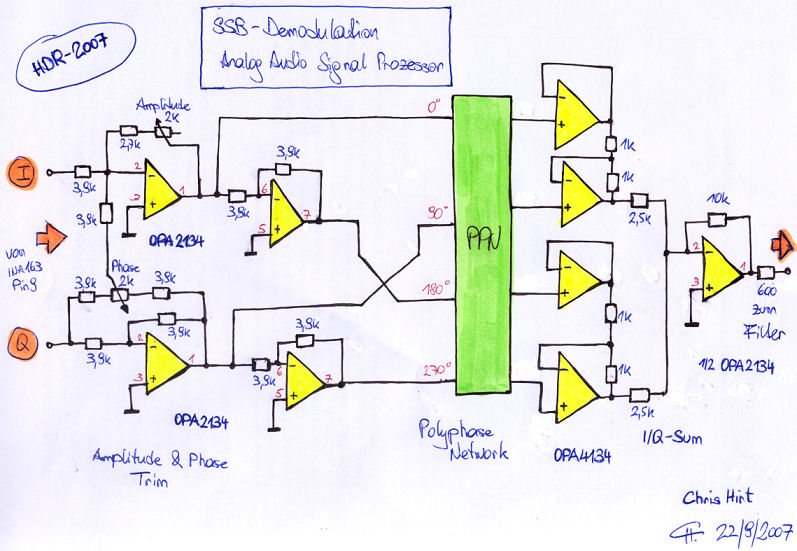 HDR-2007
SSB-Demodulation
Analog Audio Signal Prozessor
Amplitude
2k
2,7k
I
3,9k
2
3
1
OPA2134
3,9k
3,9k
3,9k
6
5
7
0°
90°
180°
270°
PPN
Polyphase
Network
von
INA163
Ping
Phase
2k
3,9k
3,9k
Q
3,9k
3,9k
2
3
1
OPA2134
3,9k
3,9k
6
5
7
Amplitude & Phase
Trim
1k
1k
2,5k
1k
1k
2,5k
OPA4134
I/Q-Sum
10k
2
3
1
600
zum
Filter
1/2 OPA2134
Chris Hirt
CH. 22/9/2007